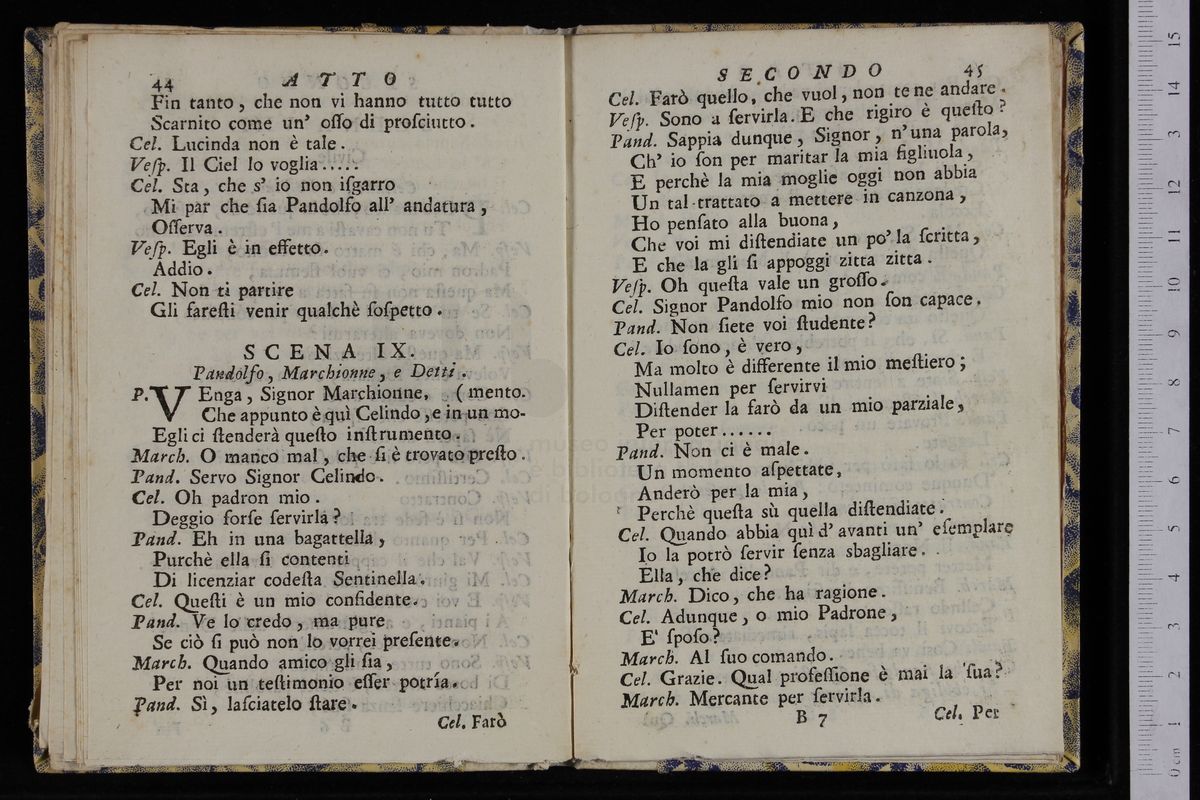 44 ATTO
Fin tanto, che non vi hanno tutto tutto
Scarnito come un' oſſo di proſciutto.
Cel. Lucinda non è tale.
Veſp. Il Ciel lo voglia.....
Cel. Sta, che s' io non iſgarro
Mi par che ſia Pandolfo all' andatura,
Oſſerva.
Veſp. Egli è in effetto.
Addio.
Cel. Non ti partire
Gli fareſti venir qualchè ſoſpetto.
SCENA IX.
Pandolfo, Marchionne, e Detti.
P. VEnga, Signor Marchionne, (mento.
Che appunto è quì Celindo, e in un mo-
Egli ci ſtenderà queſto inſtrumento.
March. O manco mal, che ſi è trovato preſto.
Pand. Servo Signor Celindo.
Cel. Oh padron mio.
Deggio forſe ſervirla?
Pand. Eh in una bagattella,
Purchè ella ſi contenti
Di licenziar codeſta Sentinella.
Cel. Queſti è un mio confidente.
Pand. Ve lo credo, ma pure
Se ciò ſi può non lo vorrei preſente.
March. Quando amico gli ſia,
Per noi un teſtimonio eſſer potría.
Pand. Sì, laſciatelo ſtare.
Cel. Farò
SECONDO 45
Cel. Farò quello, che vuol, non te ne andare.
Veſp. Sono a ſervirla. E che rigiro è queſto?
Pand. Sappia dunque, Signor, n'una parola,
Ch' io ſon per maritar la mia figliuola,
E perchè la mia moglie oggi non abbia
Un tal trattato a mettere in canzona,
Ho penſato alla buona,
Che voi mi diſtendiate un po' la ſcritta,
E che la gli ſi appoggi zitta zitta.
Veſp. Oh queſta vale un groſſo.
Cel. Signor Pandolfo mio non ſon capace.
Pand. Non ſiete voi ſtudente?
Cel. Io ſono, è vero,
Ma molto è differente il mio meſtiero;
Nullamen per ſervirvi
Diſtender la farò da un mio parziale,
Per poter......
Pand. Non ci è male.
Un momento aſpettate,
Anderò per la mia,
Perchè queſta sù quella diſtendiate.
Cel. Quando abbia quì d' avanti un' eſemplare
Io la potrò ſervir ſenza sbagliare.
Ella, che dice?
March. Dico, che ha ragione.
Cel. Adunque, o mio Padrone,
E' ſpoſo?
March. Al ſuo comando.
Cel. Grazie. Qual profeſſione è mai la ſua?
March. Mercante per ſervirla.
B 7 Cel. Per